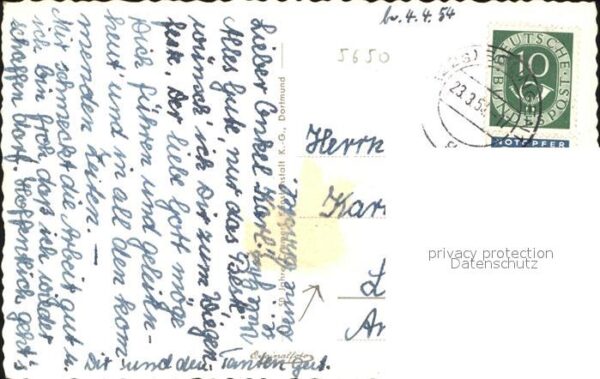 br. 4.4.54
5650
DEUTSCHE
10
BUNDESPOST
NOTOPFER
23.3.5
Lieber Onkel Karl!
Alles Gute, nur das Beste,
wünsch' ich Dir zum Wiegen-
feste. Der liebe Gott möge
Dich führen und geleiten
heut' und in all den kom
menden Zeiten. —
Mir schmeckt die Arbeit gut u.
ich bin froh, daß ich wieder
schaffen darf. Hoffentlich geht's
Dir und den Tanten gut.
K.-G., Dortmund
Herrn
Kar
L
privacy protection
Datenschutz